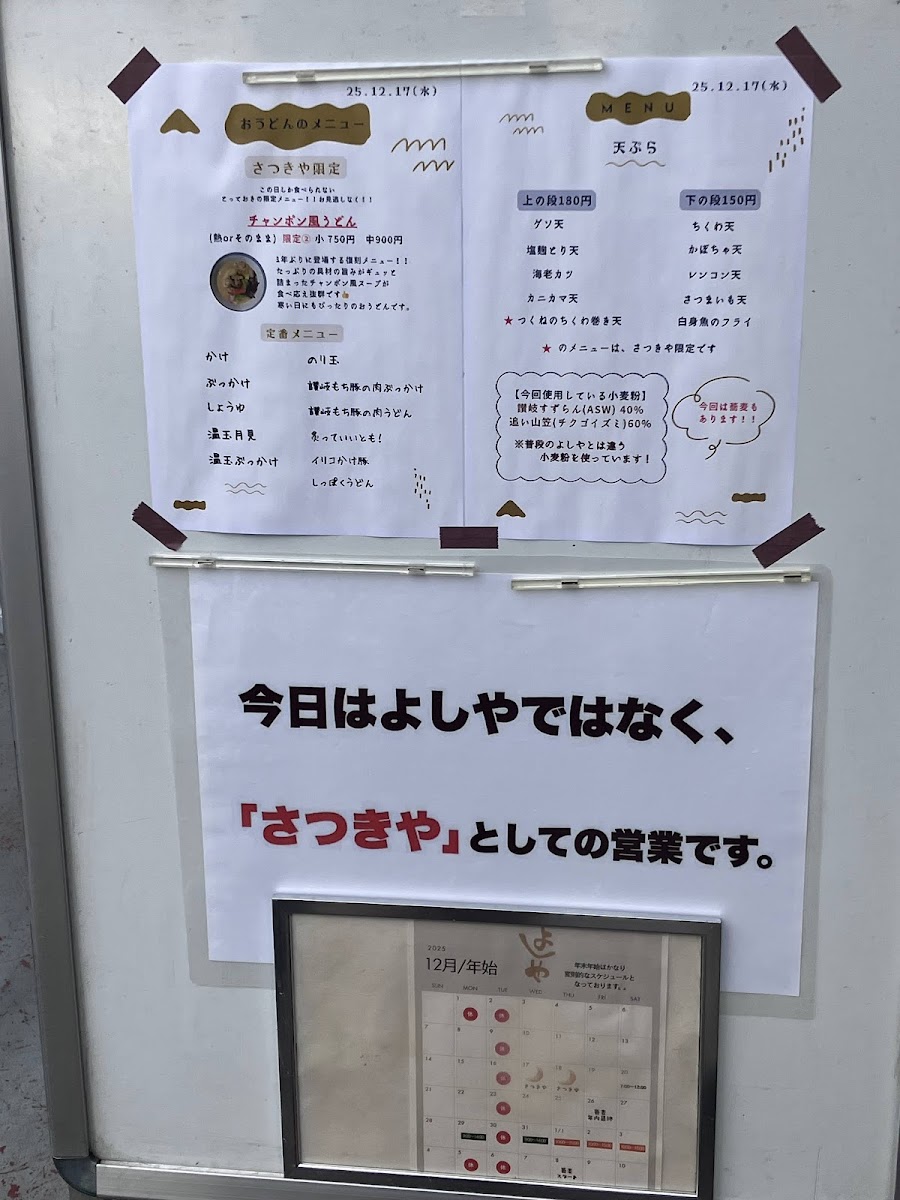 25.12.17(水)
おうどんのメニュー
さつきや限定
この日しか食べられない
とっておきの限定メニュー！！お見逃しなく！！
チャンポン風うどん
(熱orそのまま) 限定② 小750円 中900円
1年ぶりに登場する復刻メニュー！！
たっぷりの具材の旨みがギュッと
詰まったチャンポン風スープが
食べ応え抜群です👍
寒い日にもぴったりのおうどんです。
定番メニュー
かけ
ぶっかけ
しょうゆ
温玉月見
温玉ぶっかけ
のり玉
讃岐もち豚の肉ぶっかけ
讃岐もち豚の肉うどん
炙っていいとも！
イリコかけ豚
しっぽくうどん
25.12.17(水)
MENU
天ぷら
上の段180円
ゲソ天
塩麹とり天
海老カツ
カニカマ天
★つくねのちくわ巻き天
下の段150円
ちくわ天
かぼちゃ天
レンコン天
さつまいも天
白身魚のフライ
★のメニューは、さつきや限定です
【今回使用している小麦粉】
讃岐すずらん(ASW) 40%
追い山笠(チクゴイズミ)60%
※普段のよしやとは違う
小麦粉を使っています！
今回は蕎麦も
あります！！
今日はよしやではなく、
「さつきや」としての営業です。
よしや
2025
12月/年始
年末年始はかなり
変則的なスケジュールと
なっております。。
SUN MON TUE WED THU FRI SAT
1 2 3 4 5 6
休 休
7 8 9 10 11 12 13
休
14 15 16 17 18 19 20
休 さつきや さつきや
21 22 23 24 25 26 27
休
28 29 30 31 1/1 2 3
休
4 5 6 7 8 9 10
休 休